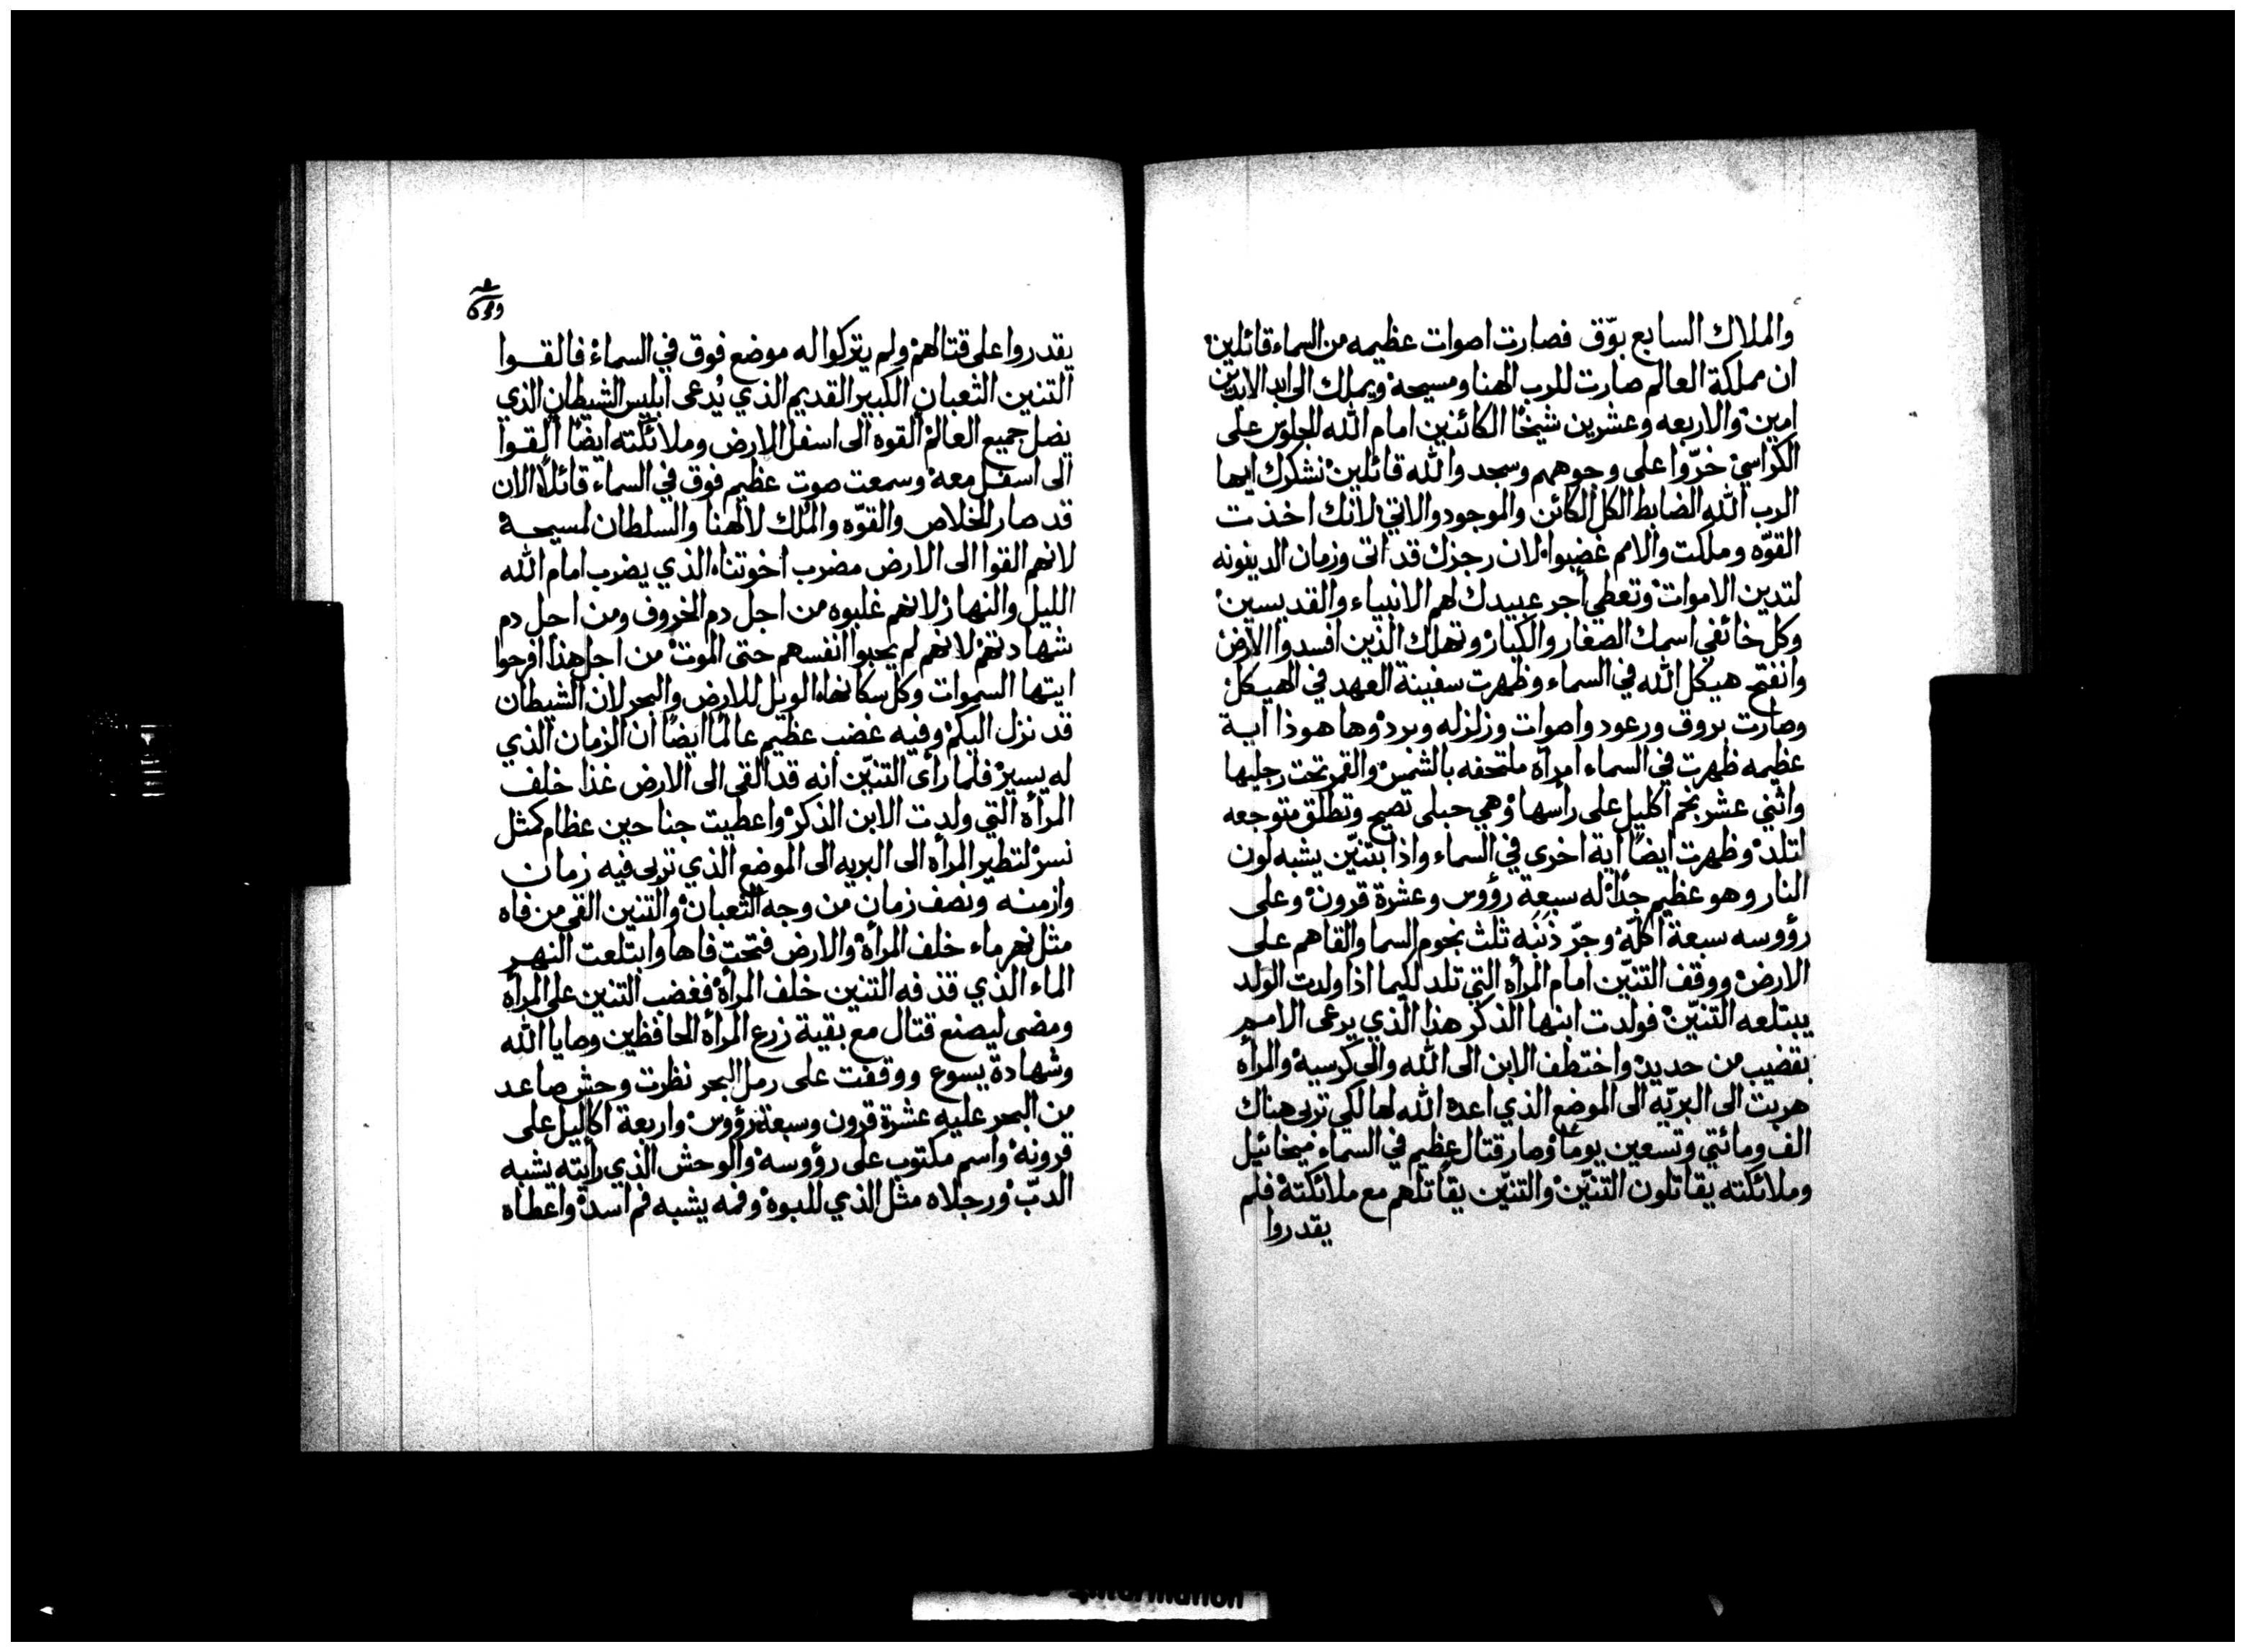 والملاك السابع بوّق فصارت اصوات عظيمه من السماء قائلين
ان مملكة العالم صارت للرب الهنا ومسيحه ويملك الى ابد الابدين
امين والاربعه وعشرين شيخًا الكائنين امام الله الجلوس على
الكراسي خرّوا على وجوههم وسجدوا لله قائلين نشكرك ايها
الرب الله الضابط الكل الكائن والموجود والاتي لانك اخذت
القوّه وملكت والامم غضبوا لان رجزك قد اتى وزمان الدينونه
لتدين الاموات وتعطي أجر عبيدك لهم الانبياء والقديسين
وكل خائفي اسمك الصغار والكبار وتهلك الذين افسدوا الارض
وانفتح هيكل الله في السماء وظهرت سفينة العهد في الهيكل
وصارت بروق ورعود واصوات وزلزله وبرد وها هوذا اية
عظيمه ظهرت في السماء امرأه ملتحفه بالشمس والقمر تحت رجليها
واثني عشر نجم اكليل على رأسها وهي حبلى تصيح وتطلق متوجعه
لتلد وظهرت ايضًا آية اخرى في السماء واذا بتنّين يشبه لون
النار وهو عظيم جدًا له سبعة رؤوس وعشرة قرون وعلى
رؤوسه سبعة اكلّة وجرّ ذَنَبَه ثلث نجوم السما والقاهم على
الارض ووقف التنّين امام المرأه التي تلد لكيما اذا ولدت الولد
يبتلعه التنّين فولدت ابنها الذكر هذا الذي يرعى الامم
بقضيب من حديد واختطف الابن الى الله والى كرسيه والمرأه
هربت الى البريّه الى الموضع الذي اعده الله لها لكي تربى هناك
الف ومائتي وتسعين يومًا وصار قتال عظيم في السماء ميخائيل
وملائكته يقاتلون التنّين والتنّين يقاتلهم مع ملائكته فلم
يقدروا
يقدروا على قتالهم ولم يتركوا له موضع فوق في السماء فالقوا
التنين الثعبان الكبير القديم الذي يُدعى ابليس الشيطان الذي
يضل جميع العالم القوه الى اسفل الارض وملائكته ايضًا القوا
الى اسفل معه وسمعت صوت عظيم فوق في السماء قائلًا الان
قد صار الخلاص والقوّه والمُلك لالهنا والسلطان لمسيحه
لانهم القوا الى الارض مضرب اخوتنا الذي يضرب امام الله
الليل والنهار لانهم غلبوه من اجل دم الخروف ومن اجل دم
شهادتهم لانهم لم يحبوا انفسهم حتى الموت من اجل هذا افرحوا
ايتها السموات وكل سكانها الويل للارض والبحر لان الشيطان
قد نزل اليكم وفيه غضب عظيم عالمًا ايضًا ان الزمان الذي
له يسير فلما رأى التنّين انه قد القي الى الارض غذا خلف
المرأه التي ولدت الابن الذكر واعطيت جناحين عظام كمثل
نسر لتطير المرأه الى البريه الى الموضع الذي تربى فيه زمان
وازمنه ونصف زمان من وجه الثعبان والتنين القى من فاه
مثل نهر ماء خلف المرأه والارض فتحت فاها وابتلعت النهر
الماء الذي قذفه التنين خلف المرأه فغضب التنين على المرأه
ومضى ليصنع قتال مع بقية زرع المرأه الحافظين وصايا الله
وشهادة يسوع ووقفت على رمل البحر نظرت وحش صاعد
من البحر عليه عشرة قرون وسبعة رؤوس واربعة اكاليل على
قرونه واسم مكتوب على رؤوسه والوحش الذي رأيته يشبه
الدبّ ورجلاه مثل الذي للبوه وفمه يشبه فم اسد واعطاه